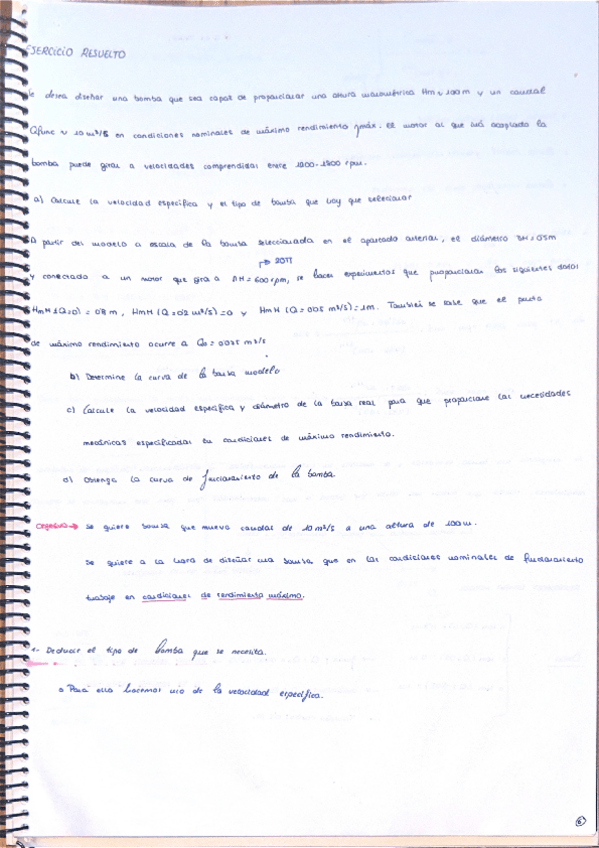 EJERCICIO RESUELTO
Se desea diseñar una bomba que sea capaz de proporcionar una altura manométrica Hm ≈ 100m y un caudal
Qfunc ≈ 10 m³/s en condiciones nominales de máximo rendimiento ηmáx. El motor al que irá acoplado la
bomba puede girar a velocidades comprendidas entre
a) Calcule la velocidad específica y el tipo de bomba que hay que seleccionar
A partir del modelo a escala de la bomba seleccionada en el apartado anterior, el diámetro
y conectado a un motor que gira a = 600 rpm, se hacen experimentos que proporcionan los siguientes datos
HmM (Q=0) = , HmM (Q = m³/s) = 0 y HmM (Q = m³/s) = 1m. También se sabe que el punto
de máximo rendimiento ocurre a m³/s
b) Determine la curva de la bomba modelo
c) Calcule la velocidad específica y diámetro de la bomba real para que proporcione las necesidades
mecánicas especificadas en condiciones de máximo rendimiento.
d) Obtenga la curva de funcionamiento de la bomba
Objetivo → Se quiere bomba que mueva caudal de 10 m³/s a una altura de 100 m.
Se quiere a la hora de diseñar una bomba que en las condiciones nominales de funcionamiento
trabaje en condiciones de rendimiento máximo.
1- Deducir el tipo de bomba que se necesita.
Para ello hacemos uso de la velocidad específica.
6